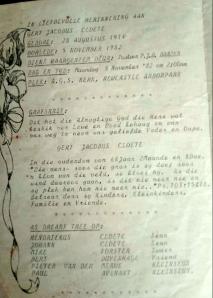 IN LIEFDEVOLLE HERINNERING AAN
GERT JACOBUS CLOETE
GEBORE: 28 AUGUSTUS 1914
OORLEDE: 5 NOVEMBER 1982
DIENS WAARGENEEM DEUR: Pastoor P.J.G.
DAG EN TYD: Maandag 8 November '82 om 2:00nm
PLEK: A.G.S. KERK, NEWCASTLE
GRAFSKRIF:
Dit het die Almagtige God die Heer wat
beskik oor Lewe en Dood behaag om van
ons weg te neem ons geliefde Vader en Oupa.
GERT JACOBUS CLOETE
In die ouderdom van 68Jaar 2Maande en 8Dae.
"Die mens- soos die gras is sy dae soos
'n blom van die veld, so bloei hy. As die
wind daaroor gaan, is dit nie meer nie en
sy plek ken hom nie meer nie.."Ps.103:15&16.
Betreur deur sy Kinders, Kleinkinders,
Familie en Vriende.
AS DRAERS TREE OP:
CLOETE Seun
JOHANN CLOETE Seun
FORSTER
Vriend
PIETER VAN DER MERWE KLEINSEUN
PAUL KLEINSEUN